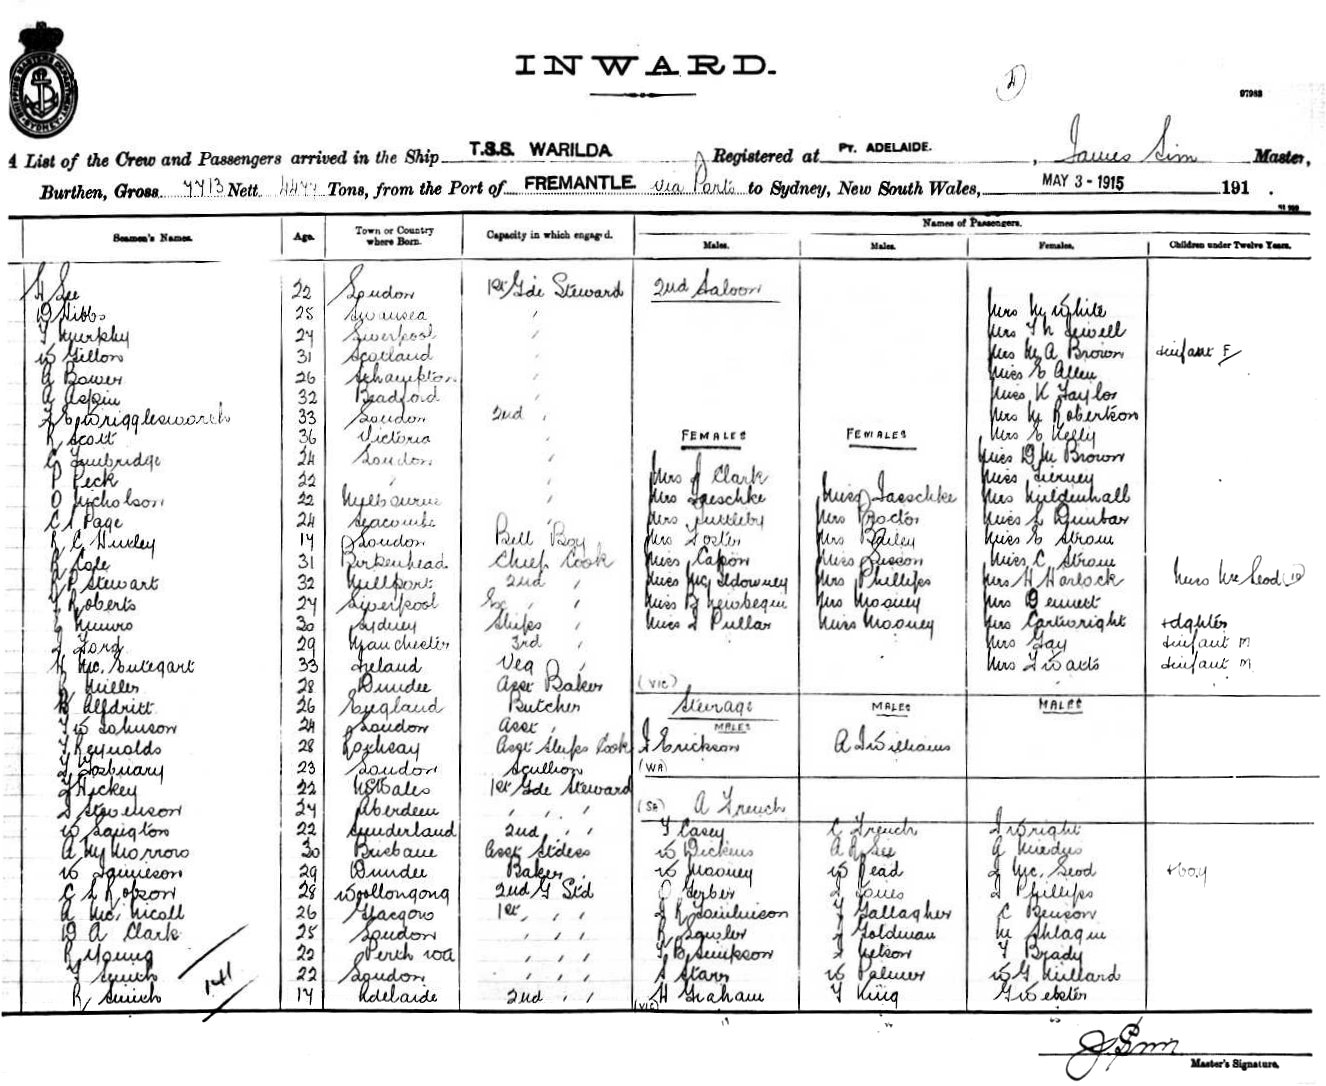 INWARD.
97983
A List of the Crew and Passengers arrived in the Ship T.S.S. WARILDA Registered at PT. ADELAIDE. , James Sim Master,
Burthen, Gross 7713 Nett 4477 Tons, from the Port of FREMANTLE via Ports to Sydney, New South Wales, MAY 3 - 1915 191 .
Names of Passengers.
Seamen's Names. Age. Town or Country where Born. Capacity in which engaged. Males. Males. Females. Children under Twelve Years.
H Lee 22 London 1st Gde Steward 2nd Saloon
D Hibbs 25 Swansea " Mrs M White
T Murphy 27 Liverpool " Mrs T N Sewell
W Gillon 31 Scotland " Mrs M A Brown infant F
A Bower 26 Sthampton " Miss E Allen
A Aspin 32 Bradford " Miss K Taylor
Wrigglesworth 33 London 2nd " Mrs M Robertson
R Scott 36 Victoria " FEMALES FEMALES Mrs E Kelly
24 London " Miss D M Brown
P Peck 22 " " Mrs J Clark Miss Tierney
O Nicholson 22 Melbourne " Mrs Jaeschke Miss Jaeschke Mrs Mildenhall
C S Page 24 Seacombe " Mrs Nuttleby Mrs Proctor Miss L Dunbar
R C Huxley 17 London Bell Boy Mrs Foster Mrs Bailey Miss E Strom
R Cole 31 Birkenhead Chief Cook Miss Capon Miss Sisson Miss C Strom
R P Stewart 32 Millport 2nd " Miss McIldowney Mrs Phillips Mrs H Harlock Miss McLeod (10)
J Roberts 27 Liverpool " Miss B Newbegin Mrs Mooney Mrs Dennett
Munro 30 Sydney Ships " Miss L Pullar Miss Mooney Mrs Cartwright + daghter
J Ford 29 Manchester 3rd " Mrs Gay infant M
H Mc. 33 Ireland Veg " Mrs infant M
Miller 28 Dundee Asst Baker (VIC)
Alfdritt 26 England Butcher Steerage MALES MALES
T W Johnson 24 London Asst " MALES
T Reynolds 28 Rothsay Asst Ships Cook J Erickson A Williams
23 London Scullion (WA)
J Hickey 22 NSWales 1st Gde Steward
J Stevenson 27 Aberdeen " " " (SA) A French
W Langton 22 Sunderland 2nd " " T Casey C French J Wright
A McMorrow 30 Brisbane Asst Stdess W Dickens A R Lee G Miedus
W Jamieson 29 Dundee Baker W Mooney W Read J Mc. Leod + boy
C L Robson 28 Woollongong 2nd G Std O Gerber J Jones J Phillips
A Mc. Nicoll 26 Glasgow 1st " " J R Tomlinson T Gallagher C Benson
D A Clark 25 London " " " R Lawler J Goldman M Shlaqui
R Young 22 Perth WA " " " T B Simpson J Nelson T Brady
T Smith 22 London " " " S Starr W Palmer W G Millard
R Smith 17 Adelaide 2nd " " H Graham T King G Webster
141
(VIC)
J Sim
Master's Signature.